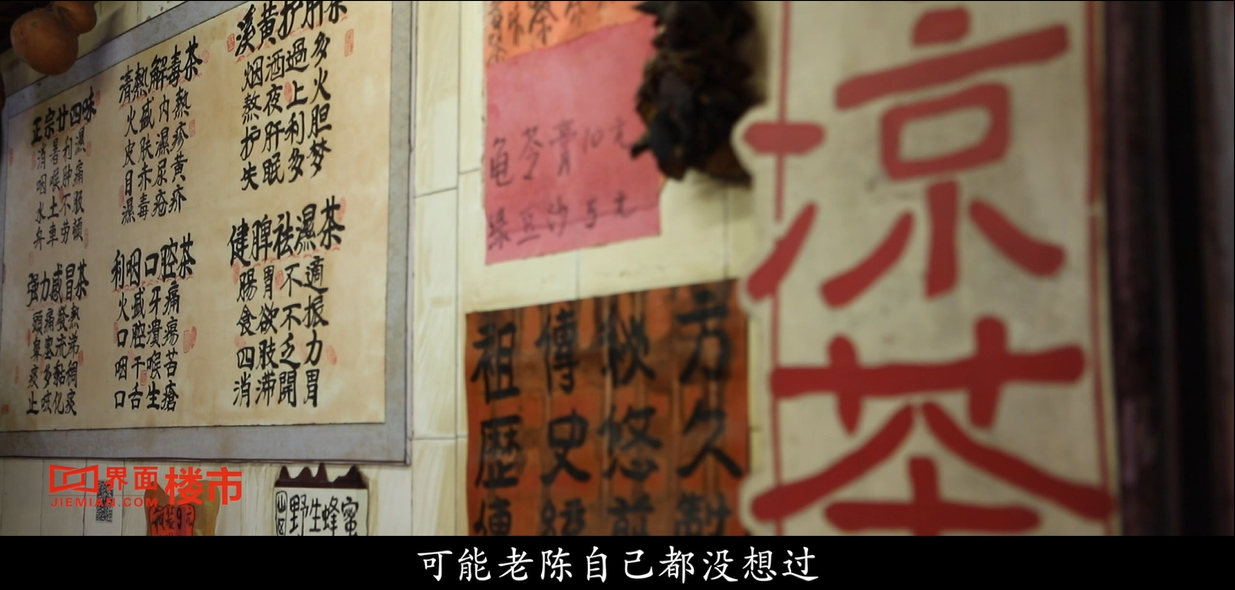 溪黄护肝茶
烟酒過多
熬夜上火
护肝利胆
失眠多梦
清熱解毒茶
火盛内熱
皮肤濕疹
目赤尿黄
濕毒疮疥
正宗廿四味
消暑利濕
咽喉肿痛
水土不服
舟車劳頓
健脾祛濕茶
腸胃不適
食欲不振
四肢乏力
消滞開胃
利咽口腔茶
火盛牙痛
口腔潰瘍
咽干喉苦
口舌生瘡
强力感冒茶
頭痛發熱
鼻塞流涕
痰多黏稠
止咳化痰
龟苓膏10元
绿豆沙5元
祖傳秘方
歷史悠久
凉茶
野生蜂蜜
界面楼市
JIEMIAN.COM
可能老陈自己都没想过